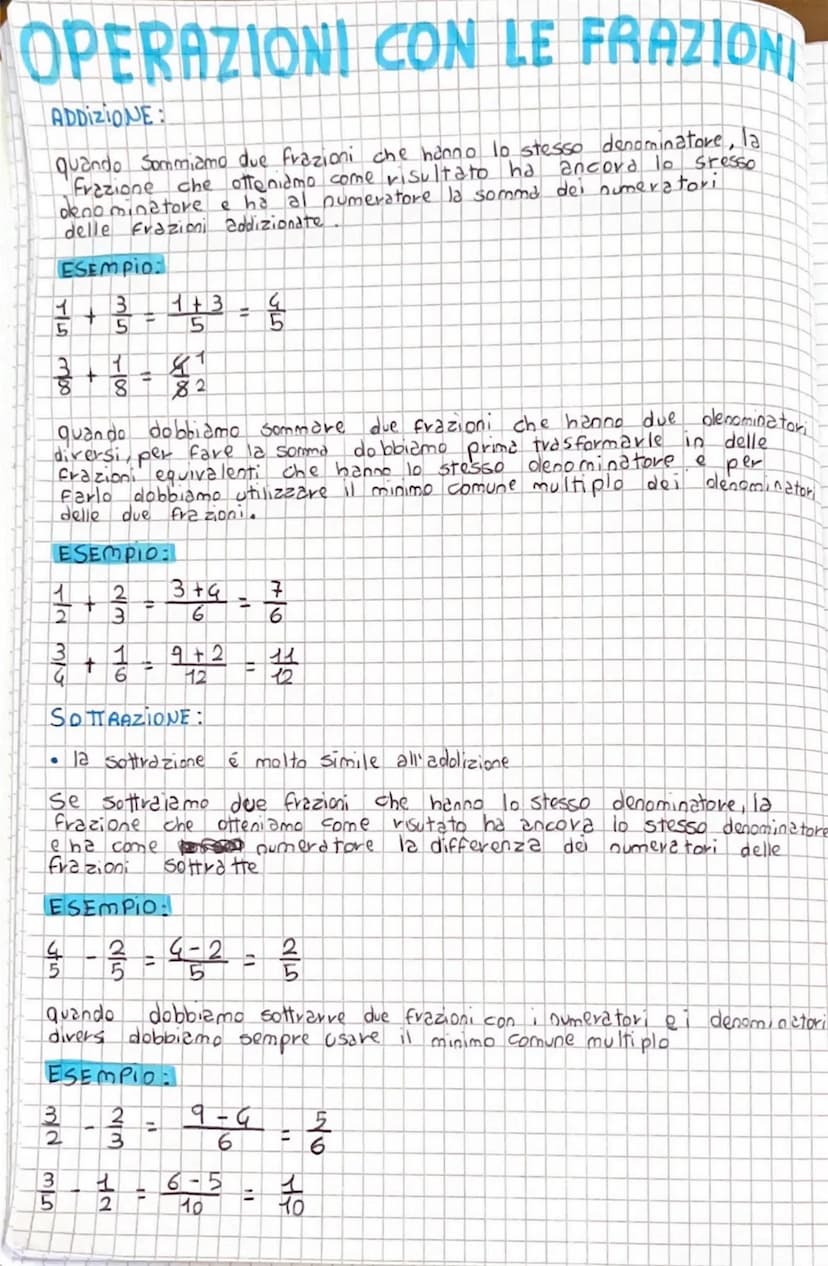 OPERAZIONI CON LE FRAZIONI
ADDIZIONE:
quando sommiamo due frazioni che hanno lo stesso denominatore, la
frazione che otteniamo come risultato ha ancora lo stesso
denominatore e ha al numeratore la somma dei numeratori
delle frazioni addizionate.
ESEMPIO:
1/5 + 3/5 = 1+3/5 = 4/5
3/8 + 1/8 = 4/8 1/2
quando dobbiamo sommare due frazioni che hanno due denominatori
diversi, per fare la somma dobbiamo prima trasformarle in delle
frazioni equivalenti che hanno lo stesso denominatore e per
farlo dobbiamo utilizzare il minimo comune multiplo dei denominatori
delle due frazioni.
ESEMPIO:
1/2 + 2/3 = 3+4/6 = 7/6
3/4 + 1/6 = 9+2/12 = 11/12
SOTTRAZIONE:
• la sottrazione é molto simile all'addizione
Se sottraiamo due frazioni che hanno lo stesso denominatore, la
frazione che otteniamo come risutato ha ancora lo stesso denominatore
e ha come numeratore la differenza dei numeratori delle
frazioni sottratte
ESEMPIO:
4/5 - 2/5 = 4-2/5 = 2/5
quando dobbiamo sottrarre due frazioni con i numeratori e i denominatori
divers dobbiamo sempre usare il minimo comune multiplo
ESEMPIO:
3/2 - 2/3 = 9-4/6 = 5/6
3/5 - 1/2 = 6-5/10 = 1/10